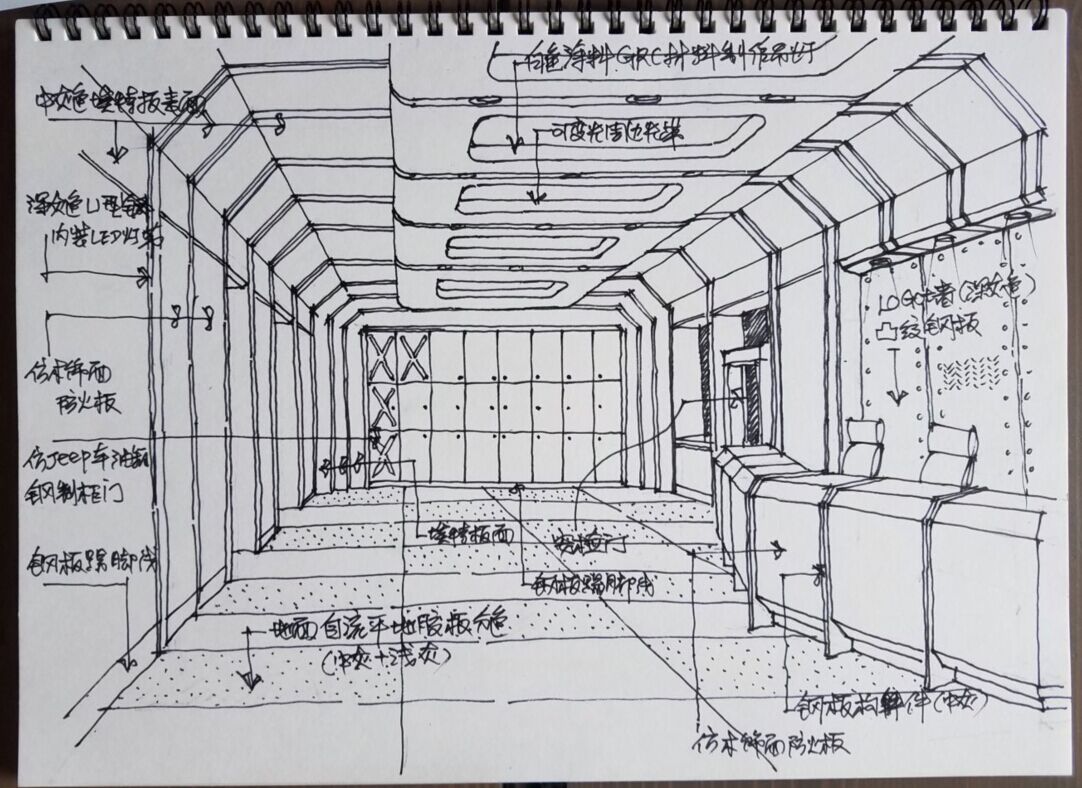 白色涂料.GRC材料制作吊灯
中灰色埃特板表面
可变光周边光带
深灰色U型钢
内装LED灯带
LOGO墙(深灰色)
凸纹钢板
仿木饰面
防火板
仿Jeep车油箱
钢制柜门
钢板踢脚线
埃特板面
安检门
钢板踢脚线
地面自流平地胶板分色
(中灰+浅灰)
钢板构件(中灰)
仿木饰面防火板